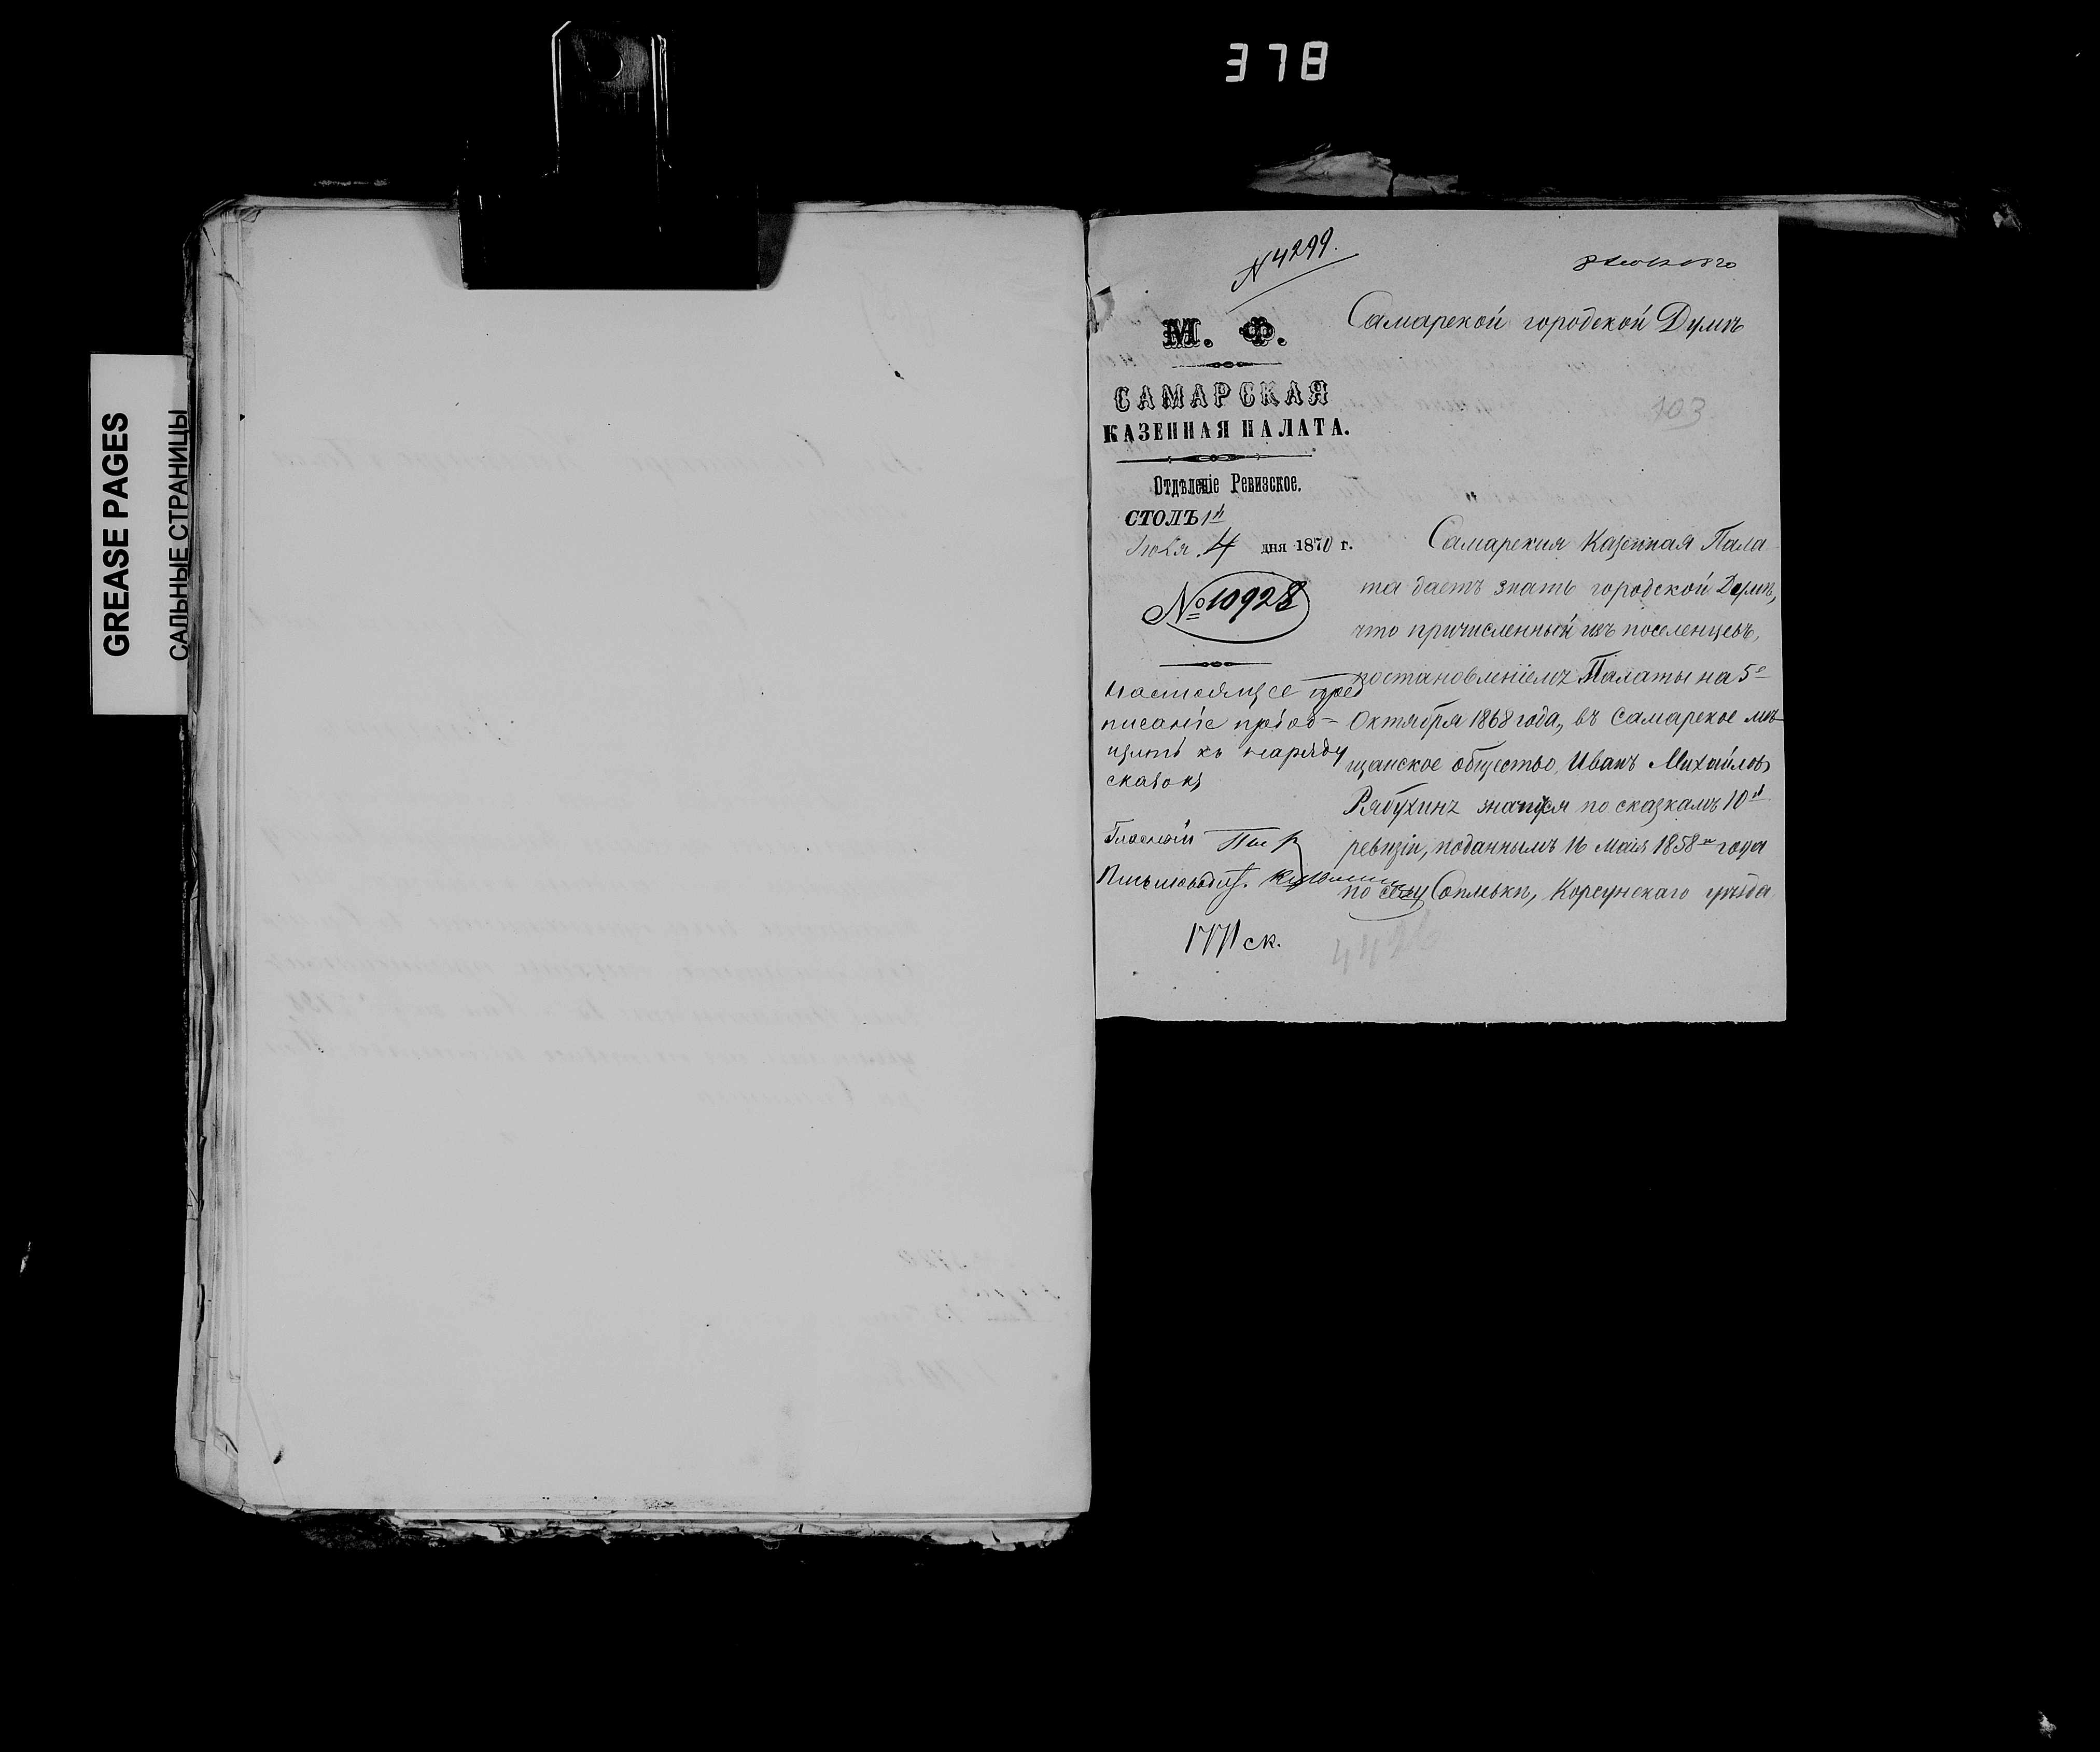 378
GREASE PAGES
САЛЬНЫЕ СТРАНИЦЫ
N 4299.
Самарской городской Думѣ
М. Ф.
САМАРСКАЯ
КАЗЕННАЯ ПАЛАТА.
103
Отдѣленіе Ревизское.
СТОЛЪ 1й
Іюля 4 дня 1870 г.
№ 10928
Самарская Казенная Пала
та даетъ знать городской Думѣ,
что причисленный изъ поселенцевъ,
постановленіемъ Палаты на 5е
Октября 1868 года, въ Самарское мѣ
щанское общество, Иванъ Михайловъ
Рябухинъ значится по сказкамъ 10й
ревизіи, поданнымъ 16 Мая 1858 года
по селу Сопляковкѣ, Корсунскаго уѣзда
Настоящее пред
писаніе пріоб=
щить къ наряду
сказокъ
Гласный
Письмоводит.
1771 ск.
4426